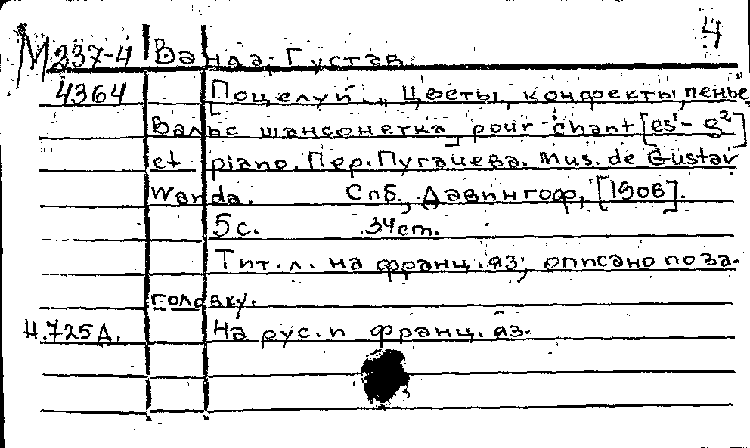 4
М237-4 Ванда, Густав.
4364 Поцелуй. „Цветы, конфекты, пенье"
Вальс шансонетка] pour chant [es¹-g²]
et piano. Пер. Пугачева. Mus. de Gustav
Wanda. Спб, Давингоф, [1906].
5 с. 34 cm.
Тит. л. на франц. яз; описано по за-
головку.
Н.725д. На рус. и франц. яз.